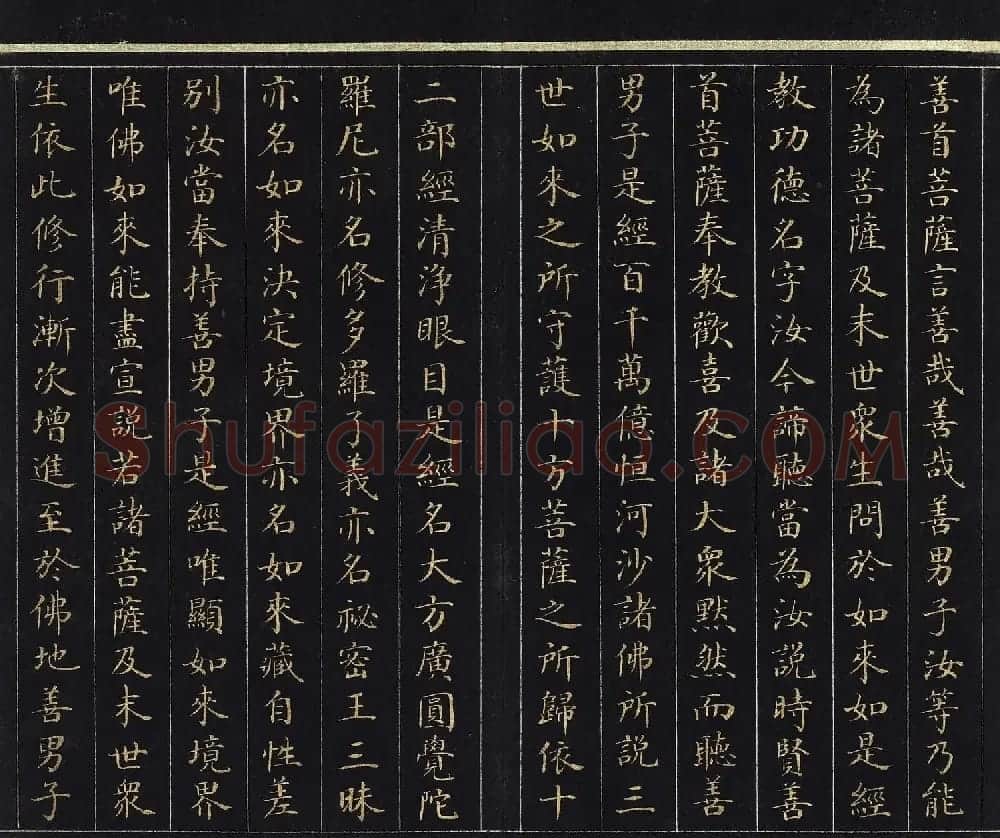 善首菩薩言善哉善哉善男子汝等乃能
為諸菩薩及末世衆生問於如來如是經
教功德名字汝今諦聽當為汝説時賢善
首菩薩奉教歡喜及諸大衆默然而聽善
男子是經百千萬億恒河沙諸佛所説三
世如來之所守護十方菩薩之所歸依十
二部經清淨眼目是經名大方廣圓覺陀
羅尼亦名修多羅了義亦名秘密王三昧
亦名如來決定境界亦名如來藏自性差
別汝當奉持善男子是經唯顯如來境界
唯佛如來能盡宣説若諸菩薩及末世衆
生依此修行漸次增進至於佛地善男子
Shufaziliao.com